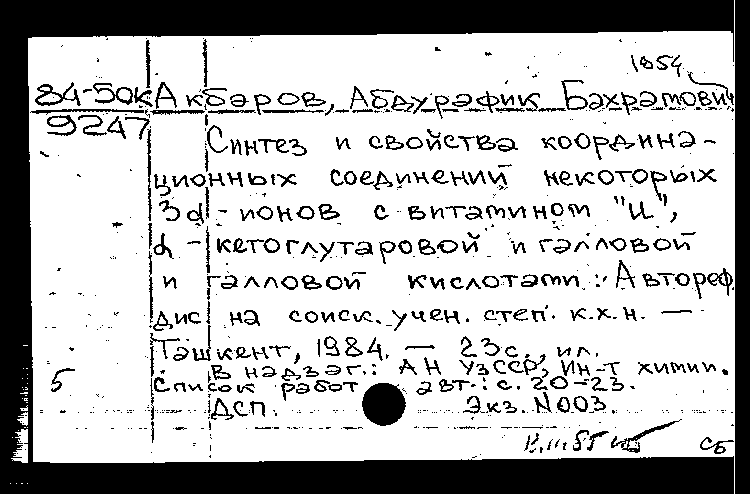 1954
84-50к Акбаров, Абдурафик Бахрамович
9247
Синтез и свойства координа-
ционных соединений некоторых
3d-ионов с витамином "U",
α-кетоглутаровой и галловой
и галловой кислотами: Автореф.
дис. на соиск. учен. степ. к.х.н. —
Ташкент, 1984. — 23с., ил.
В надзаг.: АН УзССР, Ин-т химии.
5 Список работ авт.: с. 20-23.
ДСП. Экз. N003.
СБ